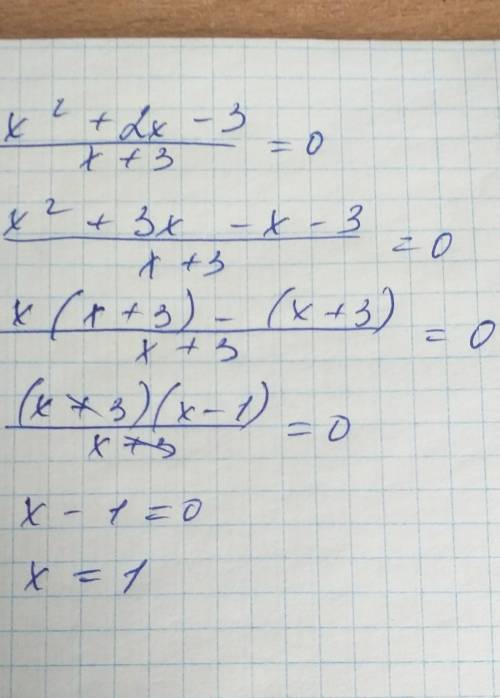 x² + 2x - 3
x + 3 = 0
x² + 3x - x - 3
x + 3 = 0
x (x + 3) - (x + 3)
x + 3 = 0
(x + 3)(x - 1)
x + 3 = 0
x - 1 = 0
x = 1